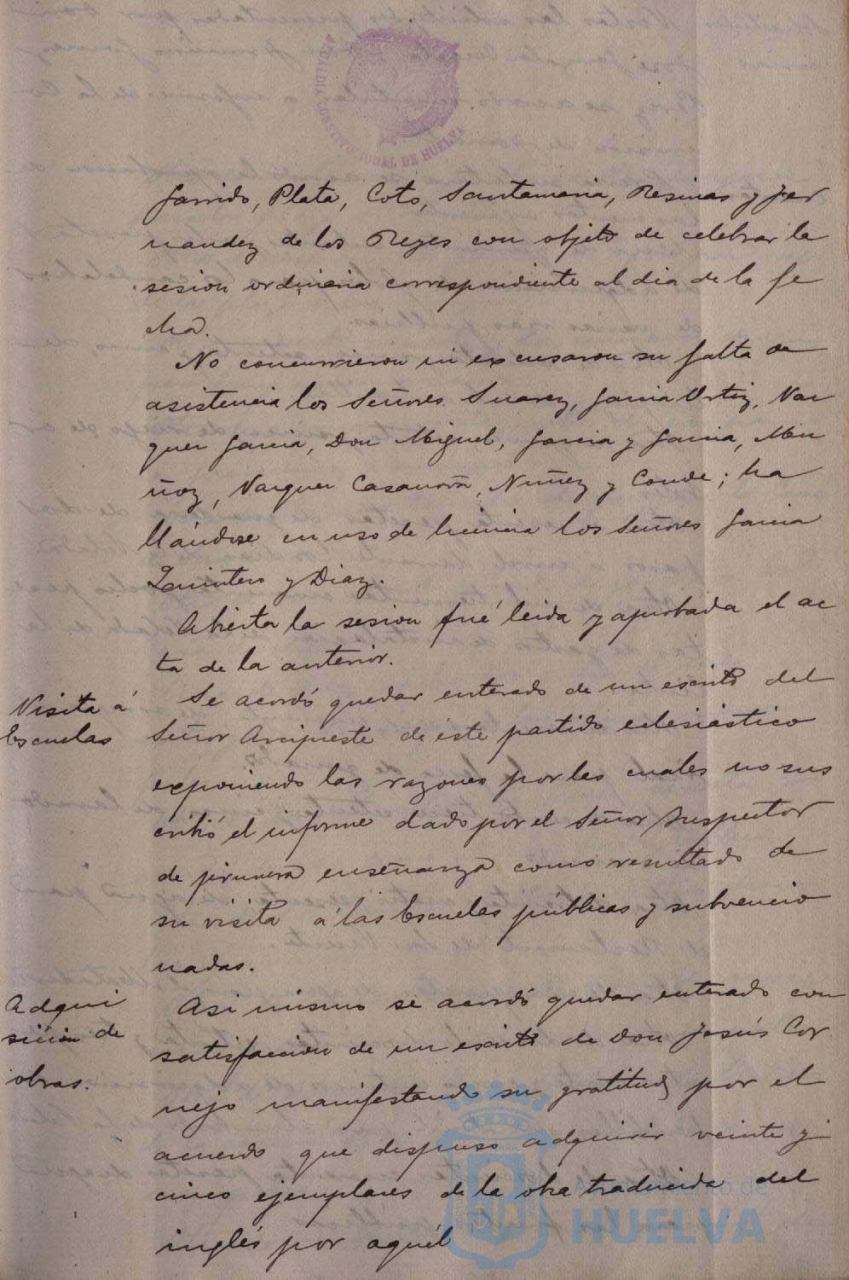 Garrido, Plata, Coto, Santamaria, Resinas y Fer
nandez de los Reyes con objeto de celebrar la
sesion ordinaria correspondiente al dia de la fe
cha.
No concurrieron ni excusaron su falta de
asistencia los Señores Suarez, Garcia Ortiz, Vaz
quez Garcia, Don Miguel, Garcia y Garcia, Mu
ñoz, Vazquez Casanova, Nuñez y Conde; ha
llándose en uso de licencia los Señores Garcia
Quintero y Diaz.
Abierta la sesion fué leida y aprobada el ac
ta de la anterior.
Visita á
Escuelas
Se acordó quedar enterado de un escrito del
Señor Arcipreste de éste partido eclesiástico
exponiendo las razones por las cuales no sus
cribió el informe dado por el Señor Inspector
de primera enseñanza como resultado de
su visita á las Escuelas públicas y subvencio
nadas.
Adqui
sición de
obras.
Asi mismo se acordó quedar enterado con
satisfaccion de un escrito de Don Jesús Cor
nejo manifestando su gratitud por el
acuerdo que dispuso adquirir veinte y
cinco ejemplares de la obra traducida del
inglés por aquél
Ayuntamiento de
HUELVA